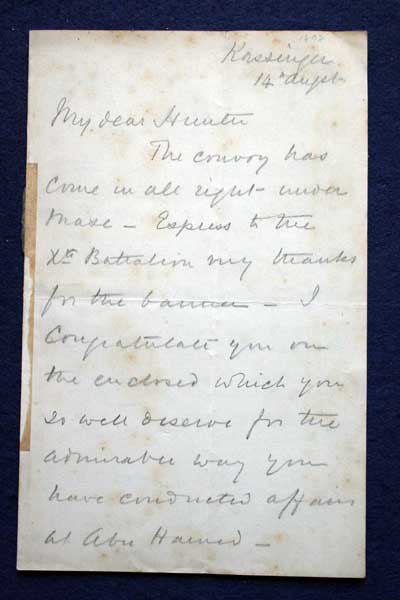 1897
Kassinger
14th Augst
My dear Hunter
The convoy has
come in all right under
Maxe – Express to the
Xth Battalion my thanks
for the banner – I
Congratulate you on
the enclosed which you
so well deserve for the
admirable way you
have conducted affairs
at Abu Hamed –